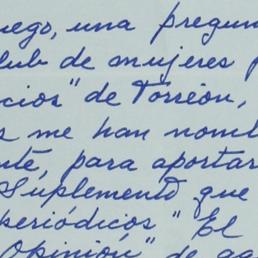 uego, una pregun
lub de mujeres p
cios" de Torreón,
s me han nomb
nte, para aportar
Suplemento que
periódicos "El
Opinión" de